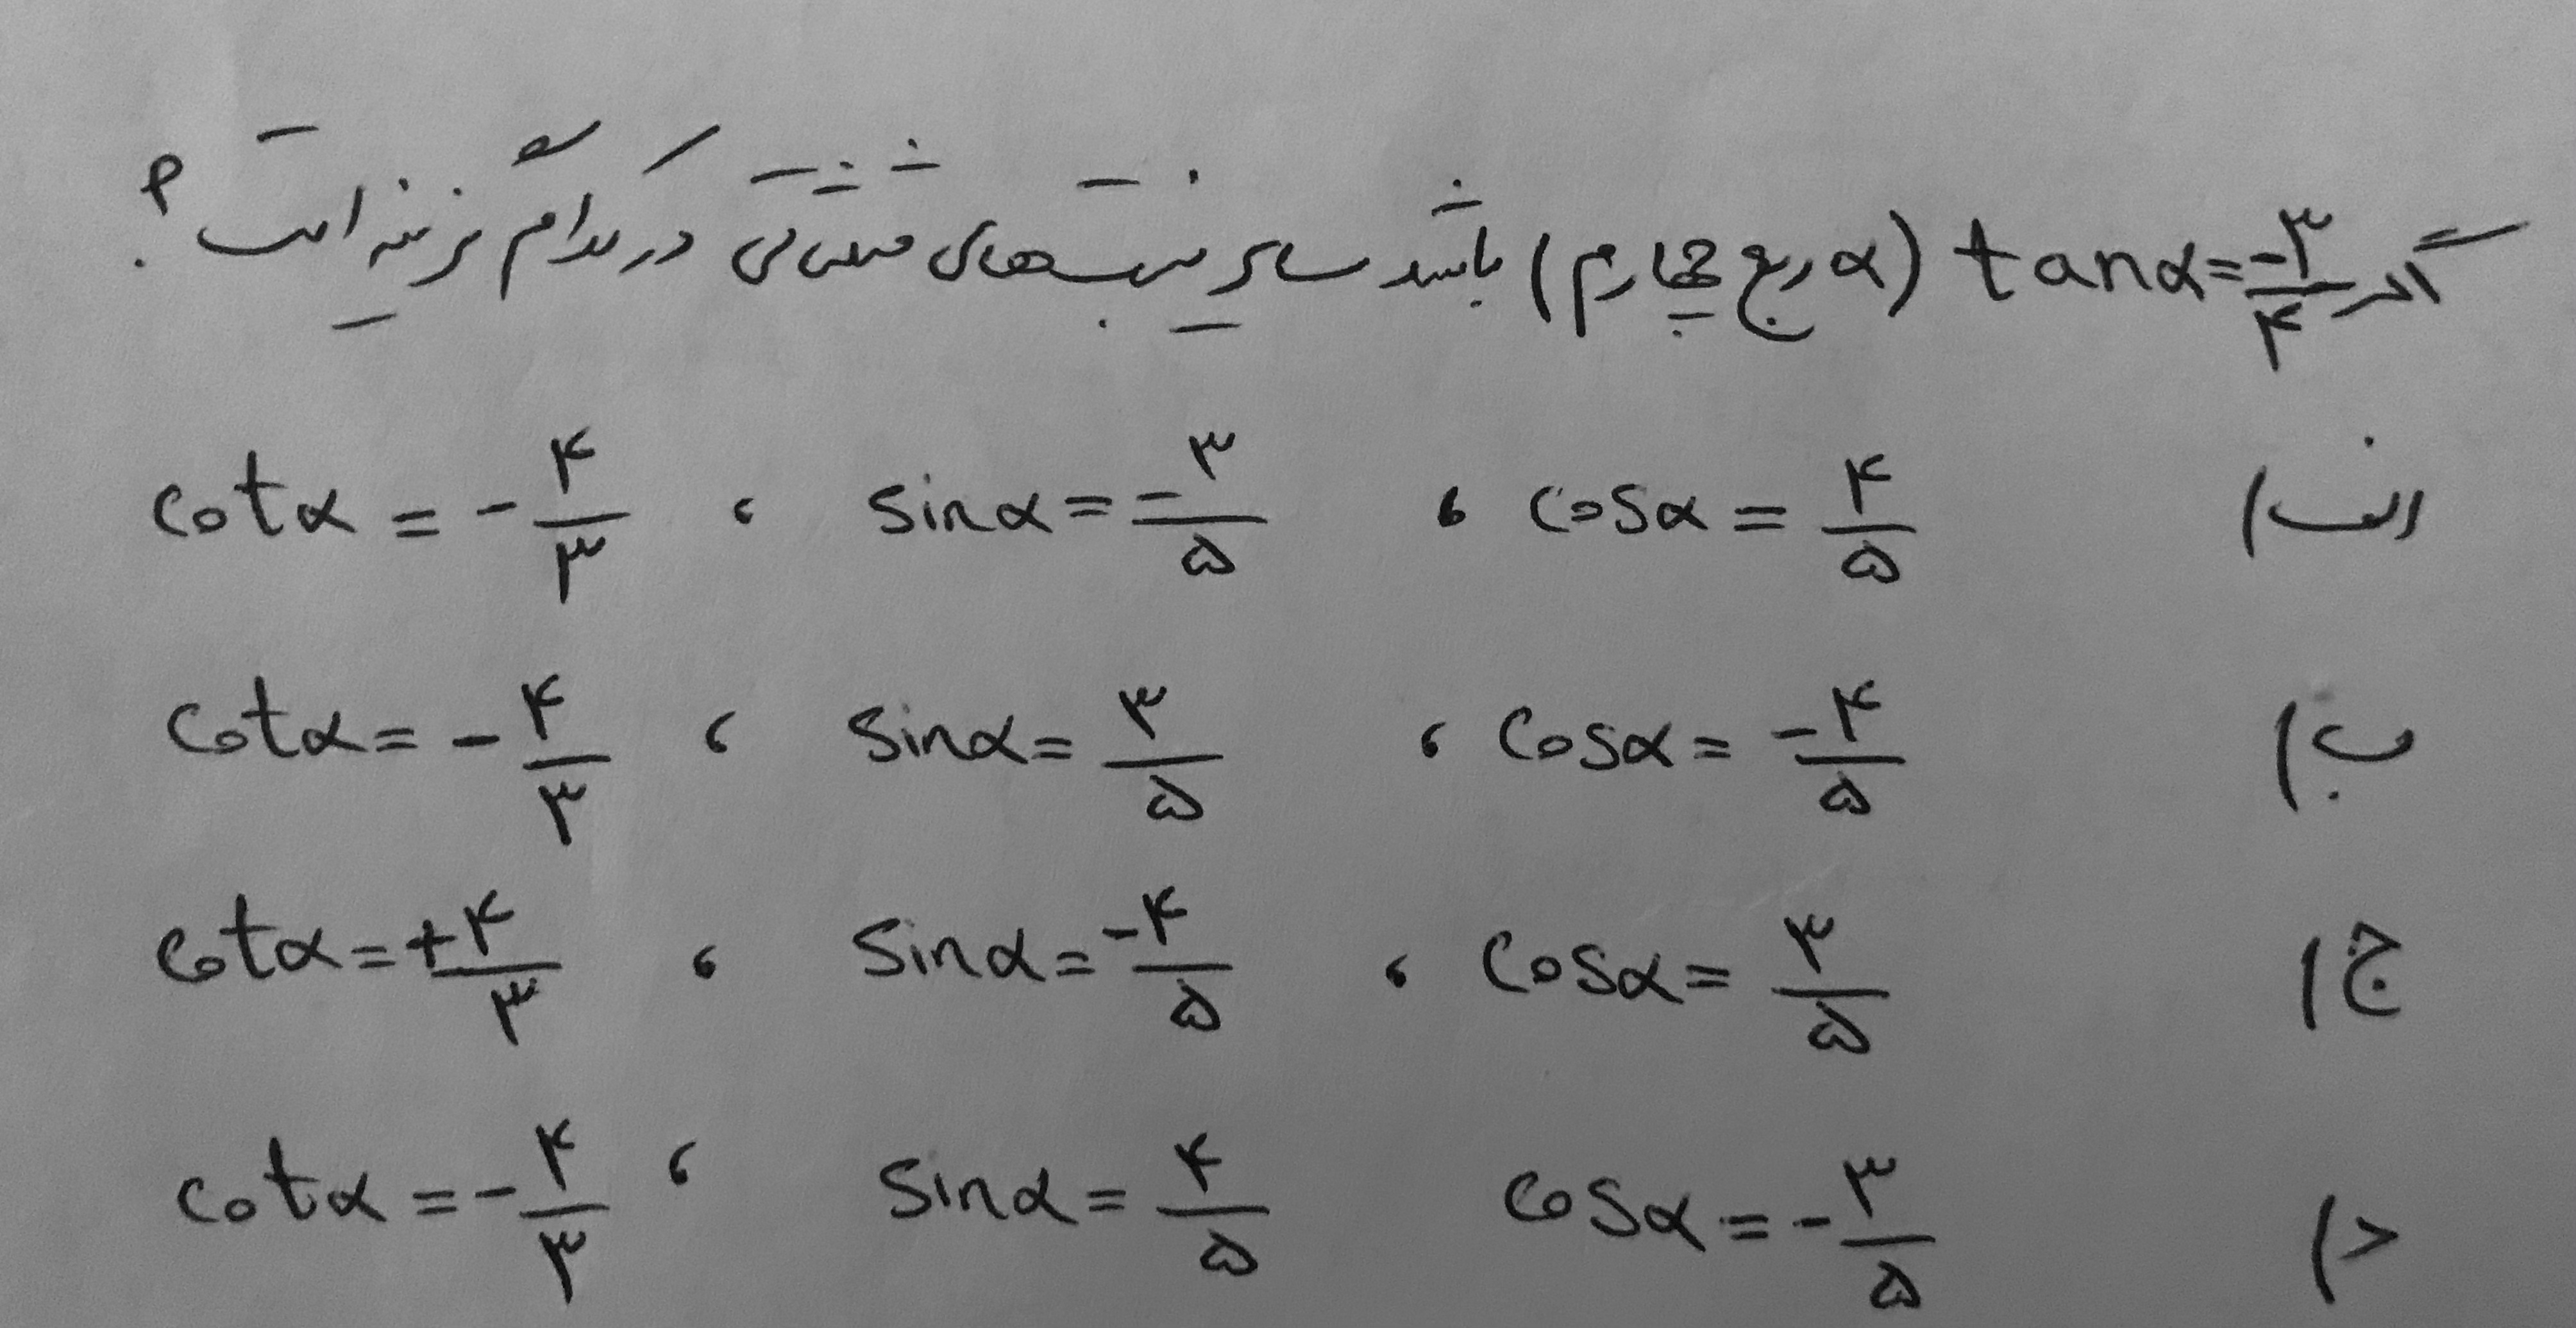 اگر tanα = -۳/۴ (α ربع چهارم) باشد سایر نسبت‌های مثلثاتی در کدام گزینه است؟
الف) cosα = ۴/۵ ، sinα = -۳/۵ ، cotα = -۴/۳
ب) cosα = -۴/۵ ، sinα = ۳/۵ ، cotα = -۴/۳
ج) cosα = ۳/۵ ، sinα = -۴/۵ ، cotα = +۴/۳
د) cosα = -۳/۵ sinα = ۴/۵ ، cotα = -۴/۳